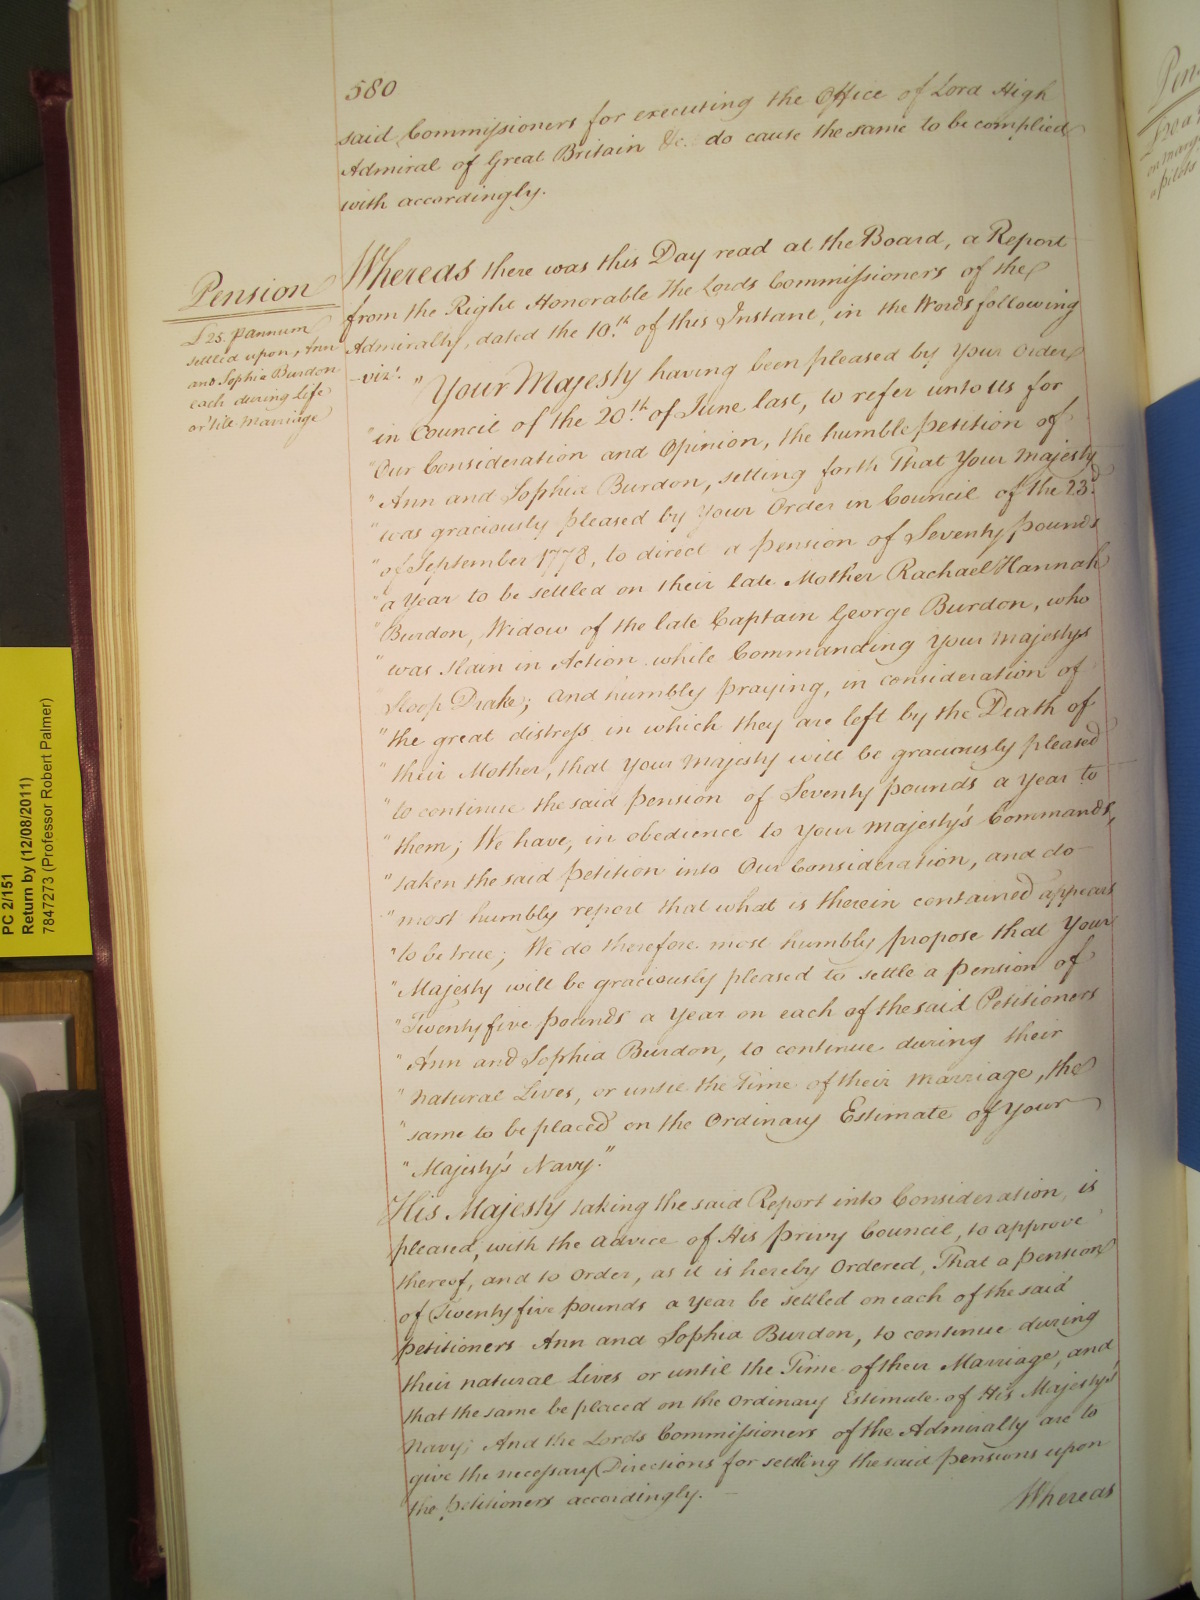 580
said Commissioners for executing the Office of Lord High
Admiral of Great Britain &c. do cause the same to be complied
with accordingly.
Pension
£25. p annum
settled upon, Ann
and Sophia Burdon
each during Life
or till Marriage
Whereas there was this Day read at the Board, a Report
from the Right Honorable the Lords Commissioners of the
Admiralty, dated the 10.th of this Instant, in the Words following
vizt. "Your Majesty having been pleased by Your Order
"in Council of the 20.th of June last, to refer unto us for
"Our Consideration and Opinion, the humble petition of
"Ann and Sophia Burdon, setting forth That Your Majesty
"was graciously pleased by Your Order in Council of the 23.d
"of September 1778, to direct a pension of Seventy pounds
"a Year to be settled on their late Mother Rachael Hannah
"Burdon, Widow of the late Captain George Burdon, who
"was slain in Action while Commanding Your Majestys
Sloop Drake; and humbly praying, in consideration of
"the great distress in which they are left by the Death of
"their Mother, that Your Majesty will be graciously pleased
"to continue the said pension of Seventy pounds a Year to
"them; We have, in obedience to Your Majesty's Commands,
"taken the said petition into Our Consideration, and do
"most humbly report that what is therein contained appears
"to be true; We do therefore most humbly propose that Your
"Majesty will be graciously pleased to settle a pension of
"Twenty five pounds a Year on each of the said Petitioners
"Ann and Sophia Burdon, to continue during their
"natural Lives, or until the Time of their Marriage, the
"same to be placed on the Ordinary Estimate of Your
"Majesty's Navy."
His Majesty taking the said Report into Consideration, is
pleased, with the advice of His privy Council, to approve
thereof, and to Order, as it is hereby Ordered, That a pension
of Twenty five pounds a Year be settled on each of the said
petitioners Ann and Sophia Burdon, to continue during
their natural Lives or until the Time of their Marriage, and
that the same be placed on the Ordinary Estimate of His Majesty's
Navy; And the Lords Commissioners of the Admiralty are to
give the necessary Directions for settling the said pensions upon
the petitioners accordingly.
Whereas
PC 2/151
Return by (12/08/2011)
7847273 (Professor Robert Palmer)